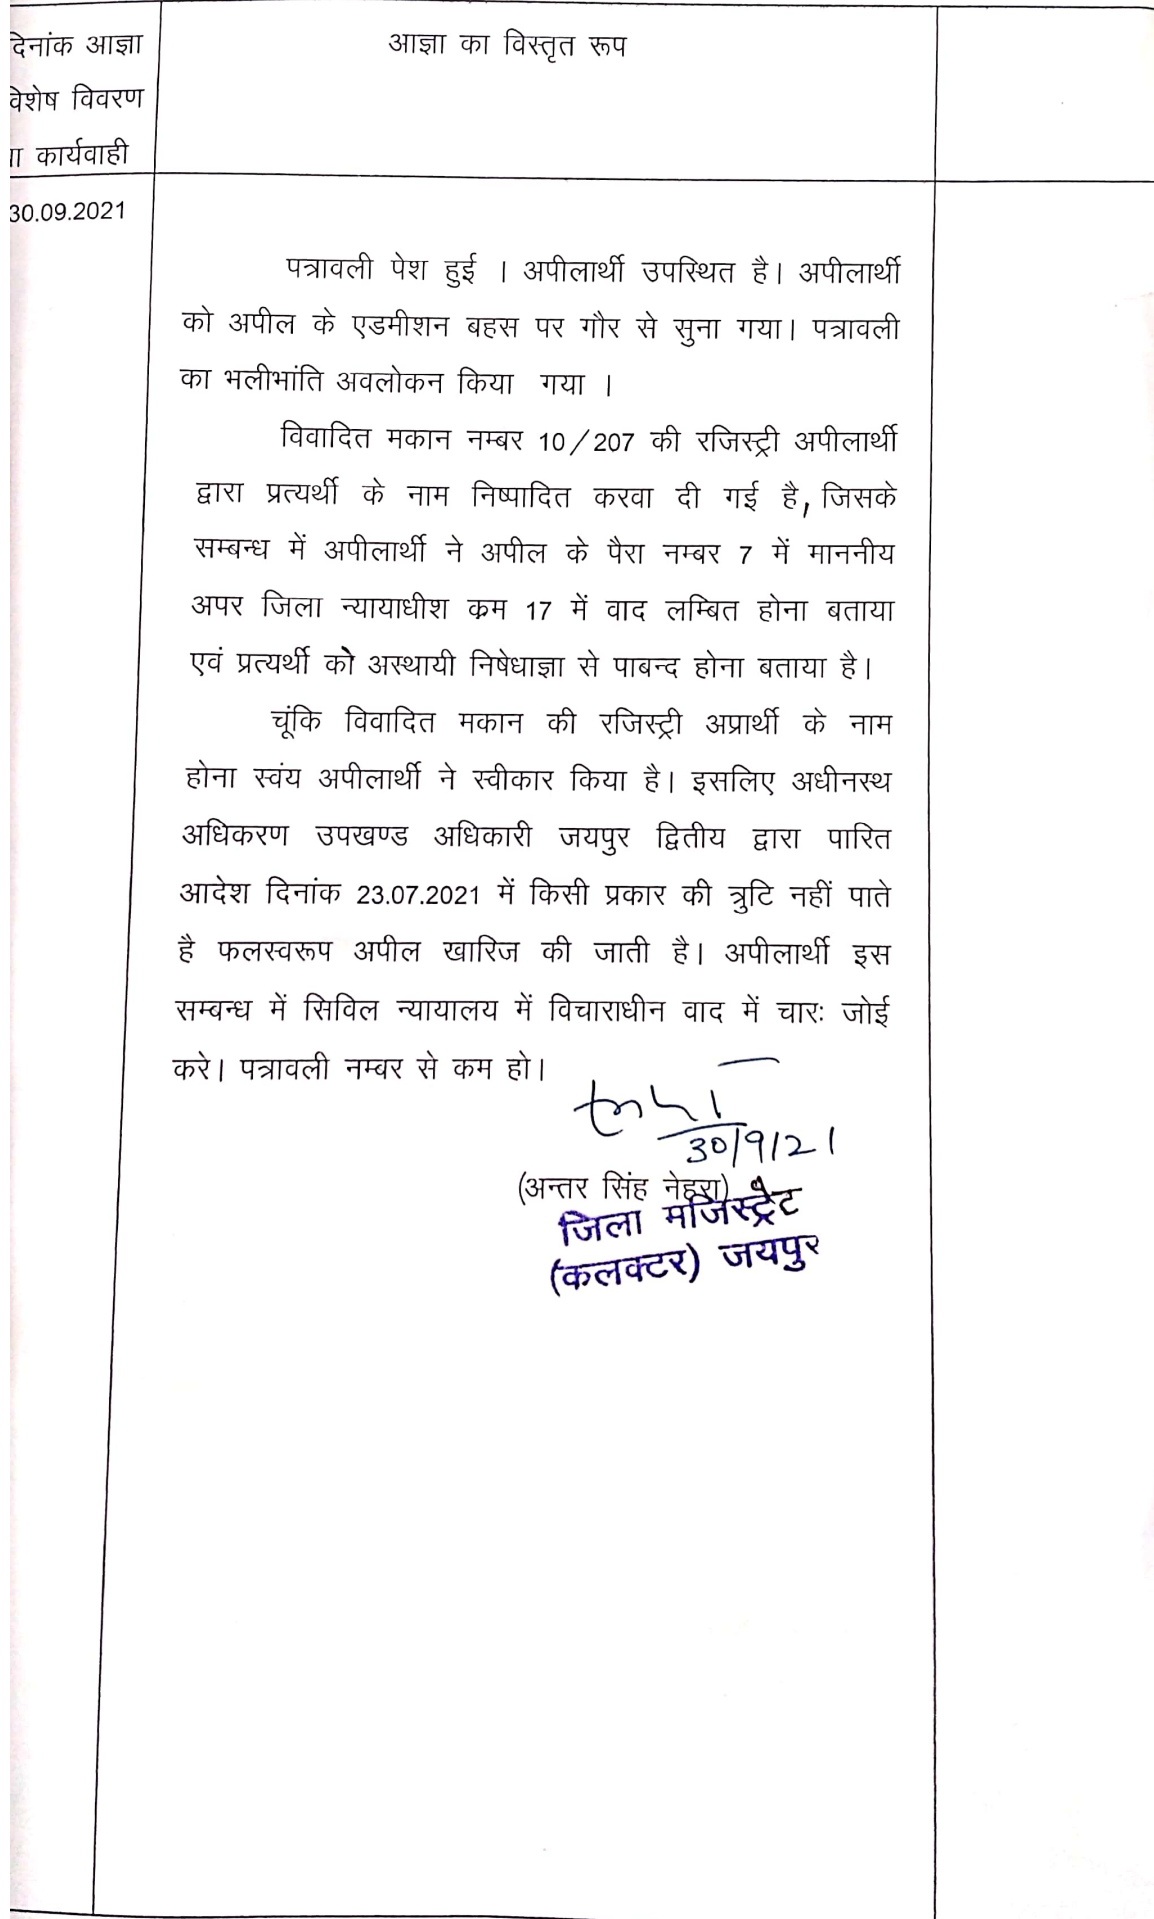 दिनांक आज्ञा
विशेष विवरण
कार्यवाही
आज्ञा का विस्तृत रूप
30.09.2021
पत्रावली पेश हुई । अपीलार्थी उपस्थित है। अपीलार्थी
को अपील के एडमीशन बहस पर गौर से सुना गया। पत्रावली
का भलीभांति अवलोकन किया गया ।
विवादित मकान नम्बर 10/207 की रजिस्ट्री अपीलार्थी
द्वारा प्रत्यर्थी के नाम निष्पादित करवा दी गई है, जिसके
सम्बन्ध में अपीलार्थी ने अपील के पैरा नम्बर 7 में माननीय
अपर जिला न्यायाधीश क्रम 17 में वाद लम्बित होना बताया
एवं प्रत्यर्थी को अस्थायी निषेधाज्ञा से पाबन्द होना बताया है।
चूंकि विवादित मकान की रजिस्ट्री अप्रार्थी के नाम
होना स्वंय अपीलार्थी ने स्वीकार किया है। इसलिए अधीनस्थ
अधिकरण उपखण्ड अधिकारी जयपुर द्वितीय द्वारा पारित
आदेश दिनांक 23.07.2021 में किसी प्रकार की त्रुटि नहीं पाते
है फलस्वरूप अपील खारिज की जाती है। अपीलार्थी इस
सम्बन्ध में सिविल न्यायालय में विचाराधीन वाद में चारः जोई
करे। पत्रावली नम्बर से कम हो।
30/9/21
(अन्तर सिंह नेहरा)
जिला मजिस्ट्रेट
(कलक्टर) जयपुर